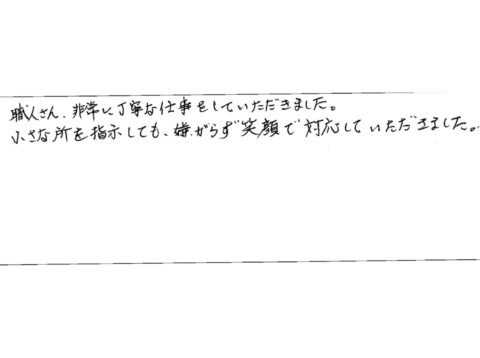 職人さん、非常に丁寧な仕事をしていただきました。
小さな所を指示しても、嫌がらず笑顔で対応していただきました。